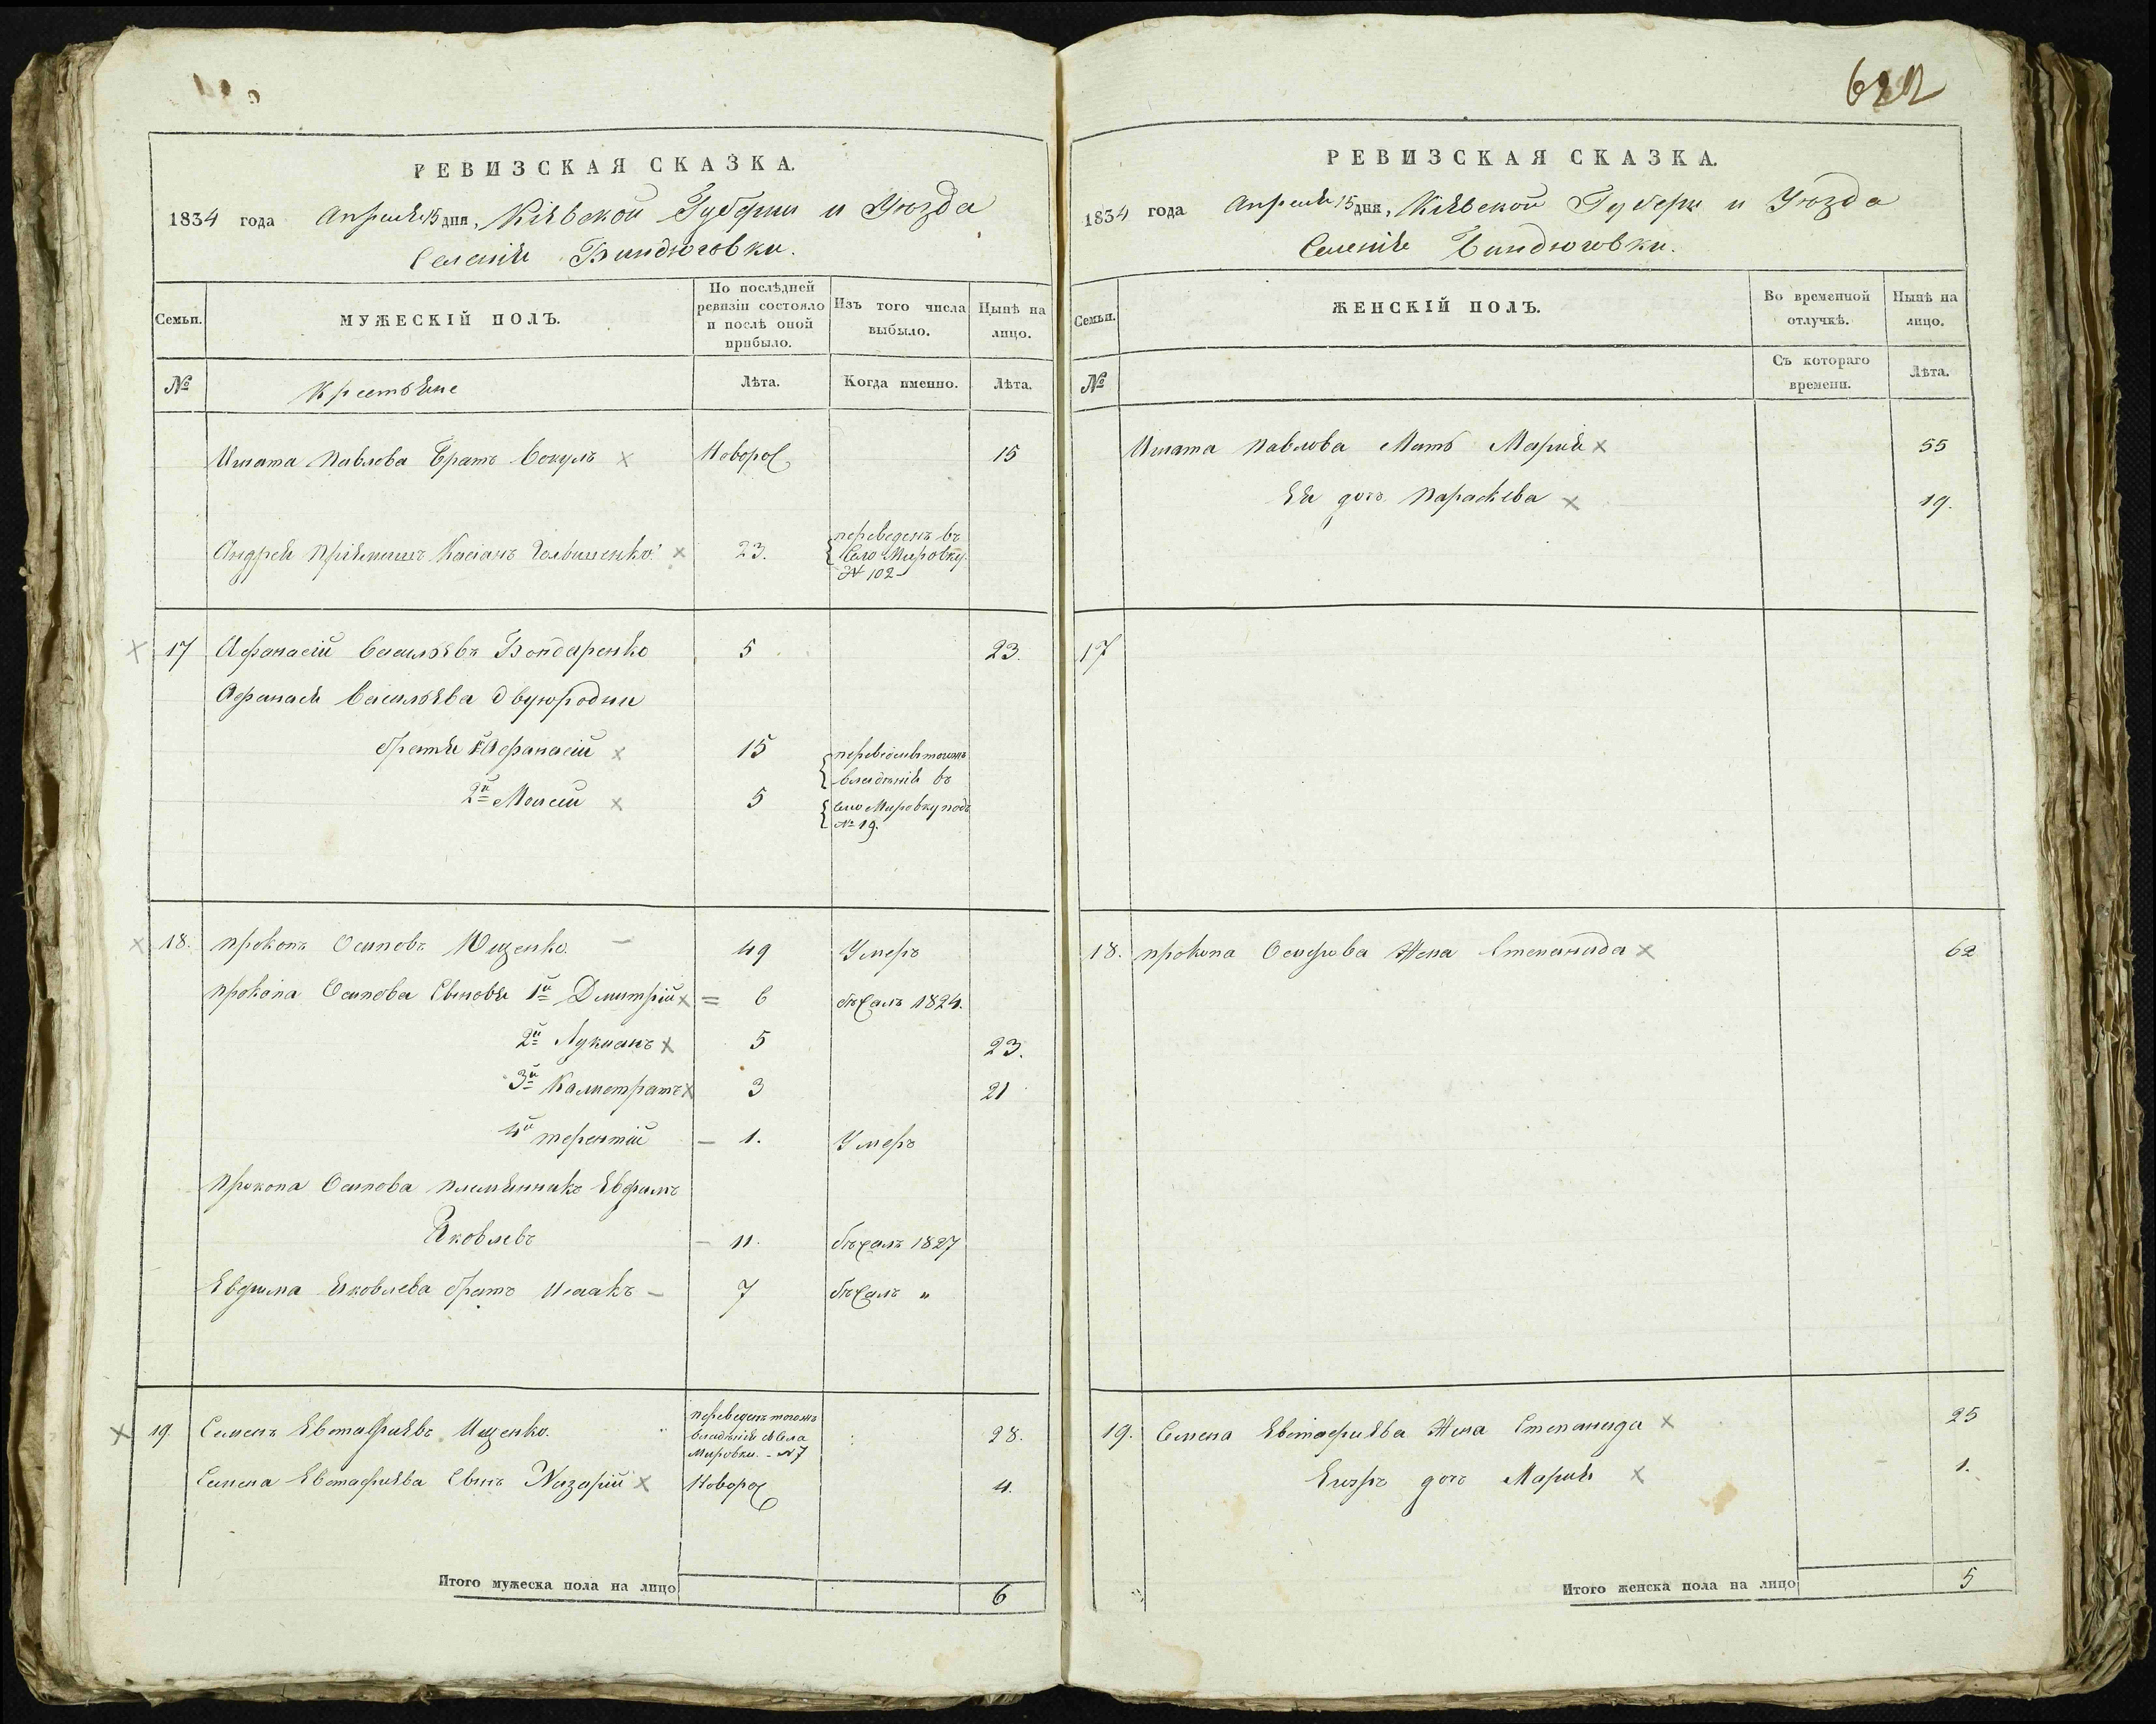 622
РЕВИЗСКАЯ СКАЗКА.
1834 года Апреля 15 дня, Кіевской Губерніи и Уѣзда
Селенія Биндюговки.
Семьи. МУЖЕСКІЙ ПОЛЪ. По послѣдней ревизіи состояло и послѣ оной прибыло. Изъ того числа выбыло. Нынѣ на лицо.
№ Крестьяне Лѣта. Когда именно. Лѣта.
Павлова Братъ × Новорож 15
Андрея Касіанъ × 23. переведенъ въ
Село Мировку
№ 102
× 17 Афанасій Васильевъ Бондаренко 5 23.
Афанася Васильева двуюродни
братья 1й Афанасій × 15 владѣнія въ
2й Моисей × 5 село Мировку подъ
№ 19.
× 18. Прокопъ Осиповъ Ющенко. — 49 Умеръ
Прокопа Осипова Сыновья 1й Дмитрій × = 6 бѣжалъ 1824.
2й Лукианъ × 5 23.
3й Калистратъ × 3 21
4й Терентій — 1. Умеръ
Прокопа Осипова племянникъ Евфимъ
Яковлевъ — 11. бѣжалъ 1827
Евфима Яковлева братъ Исаакъ — 7 бѣжалъ "
× 19. Семенъ Евстафиевъ Ищенко. переведенъ тогожъ
владѣнія съ Села
Мировки. № 7 28.
Семена Евстафиева Сынъ Назарій × Новорож 4.
Итого мужеска пола на лицо 6
РЕВИЗСКАЯ СКАЗКА.
1834 года Апреля 15 дня, Кіевской Губерн и Уѣзда
Селенія Биндюговки.
Семьи. ЖЕНСКІЙ ПОЛЪ. Во временной отлучкѣ. Нынѣ на лицо.
№ Съ котораго времени. Лѣта.
Павлова Мать Марія × 55
Ея дочь Параскева × 19.
17
18. Прокопа Осипова Жена Степанида × 62
19. Семена Евстафиева Жена Степанида × 25
дочь Марія × 1.
Итого женска пола на лицо 5